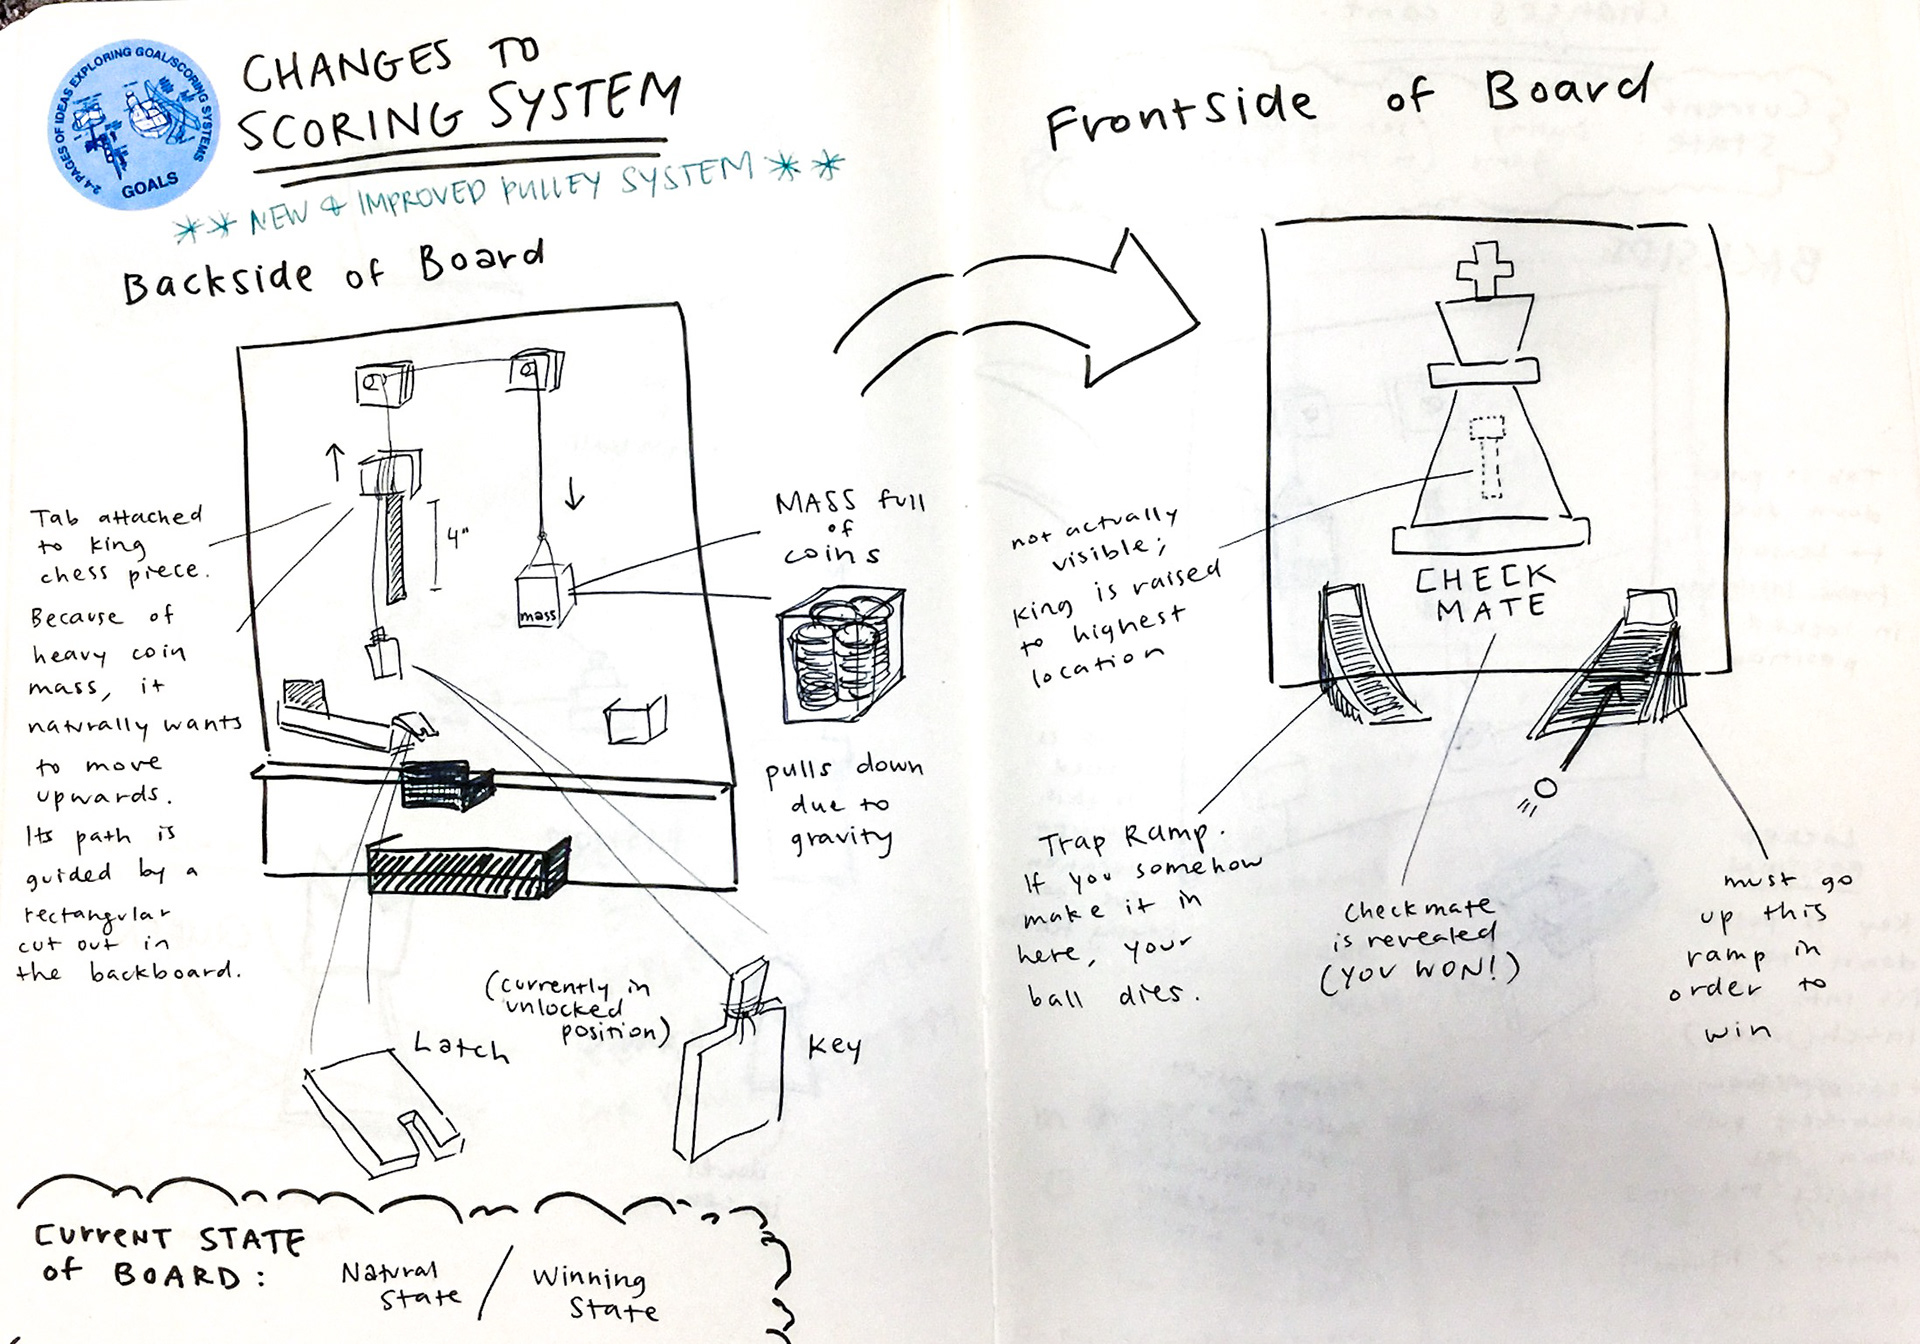 2-4 PAGES OF IDEAS EXPLORING GOAL/SCORING SYSTEMS
GOALS
CHANGES TO
SCORING SYSTEM
** NEW & IMPROVED PULLEY SYSTEM **
Backside of Board
Tab attached
to king
chess piece.
Because of
heavy coin
mass, it
naturally wants
to move
upwards.
Its path is
guided by a
rectangular
cut out in
the backboard.
4"
mass
MASS full
of
coins
pulls down
due to
gravity
Latch
(currently in
unlocked
position)
Key
CURRENT STATE
of BOARD:
Natural
State
/
Winning
State
Frontside of Board
CHECK
MATE
not actually
visible;
King is raised
to highest
location
Trap Ramp.
If you somehow
make it in
here, your
ball dies.
Checkmate
is revealed
(YOU WON!)
must go
up this
ramp in
order to
win